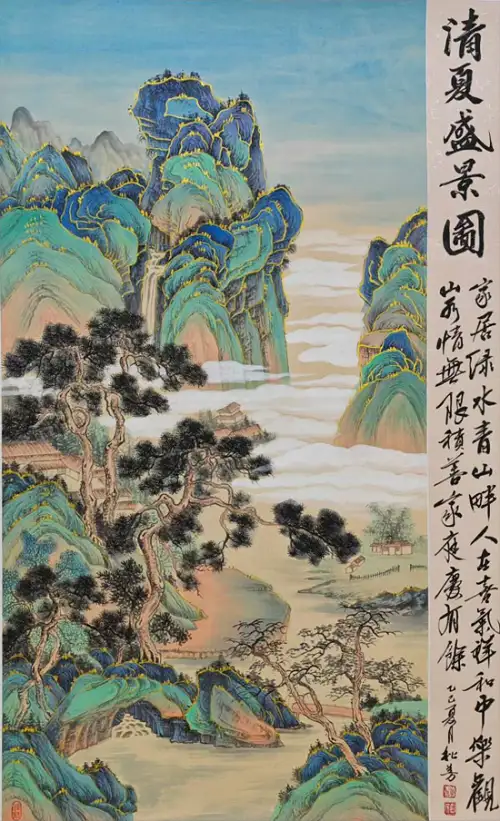 清夏盛景圖
家居绿水青山畔人在喜氣祥和中樂觀
山水情無限積善家庭慶有餘
乙巳夏月